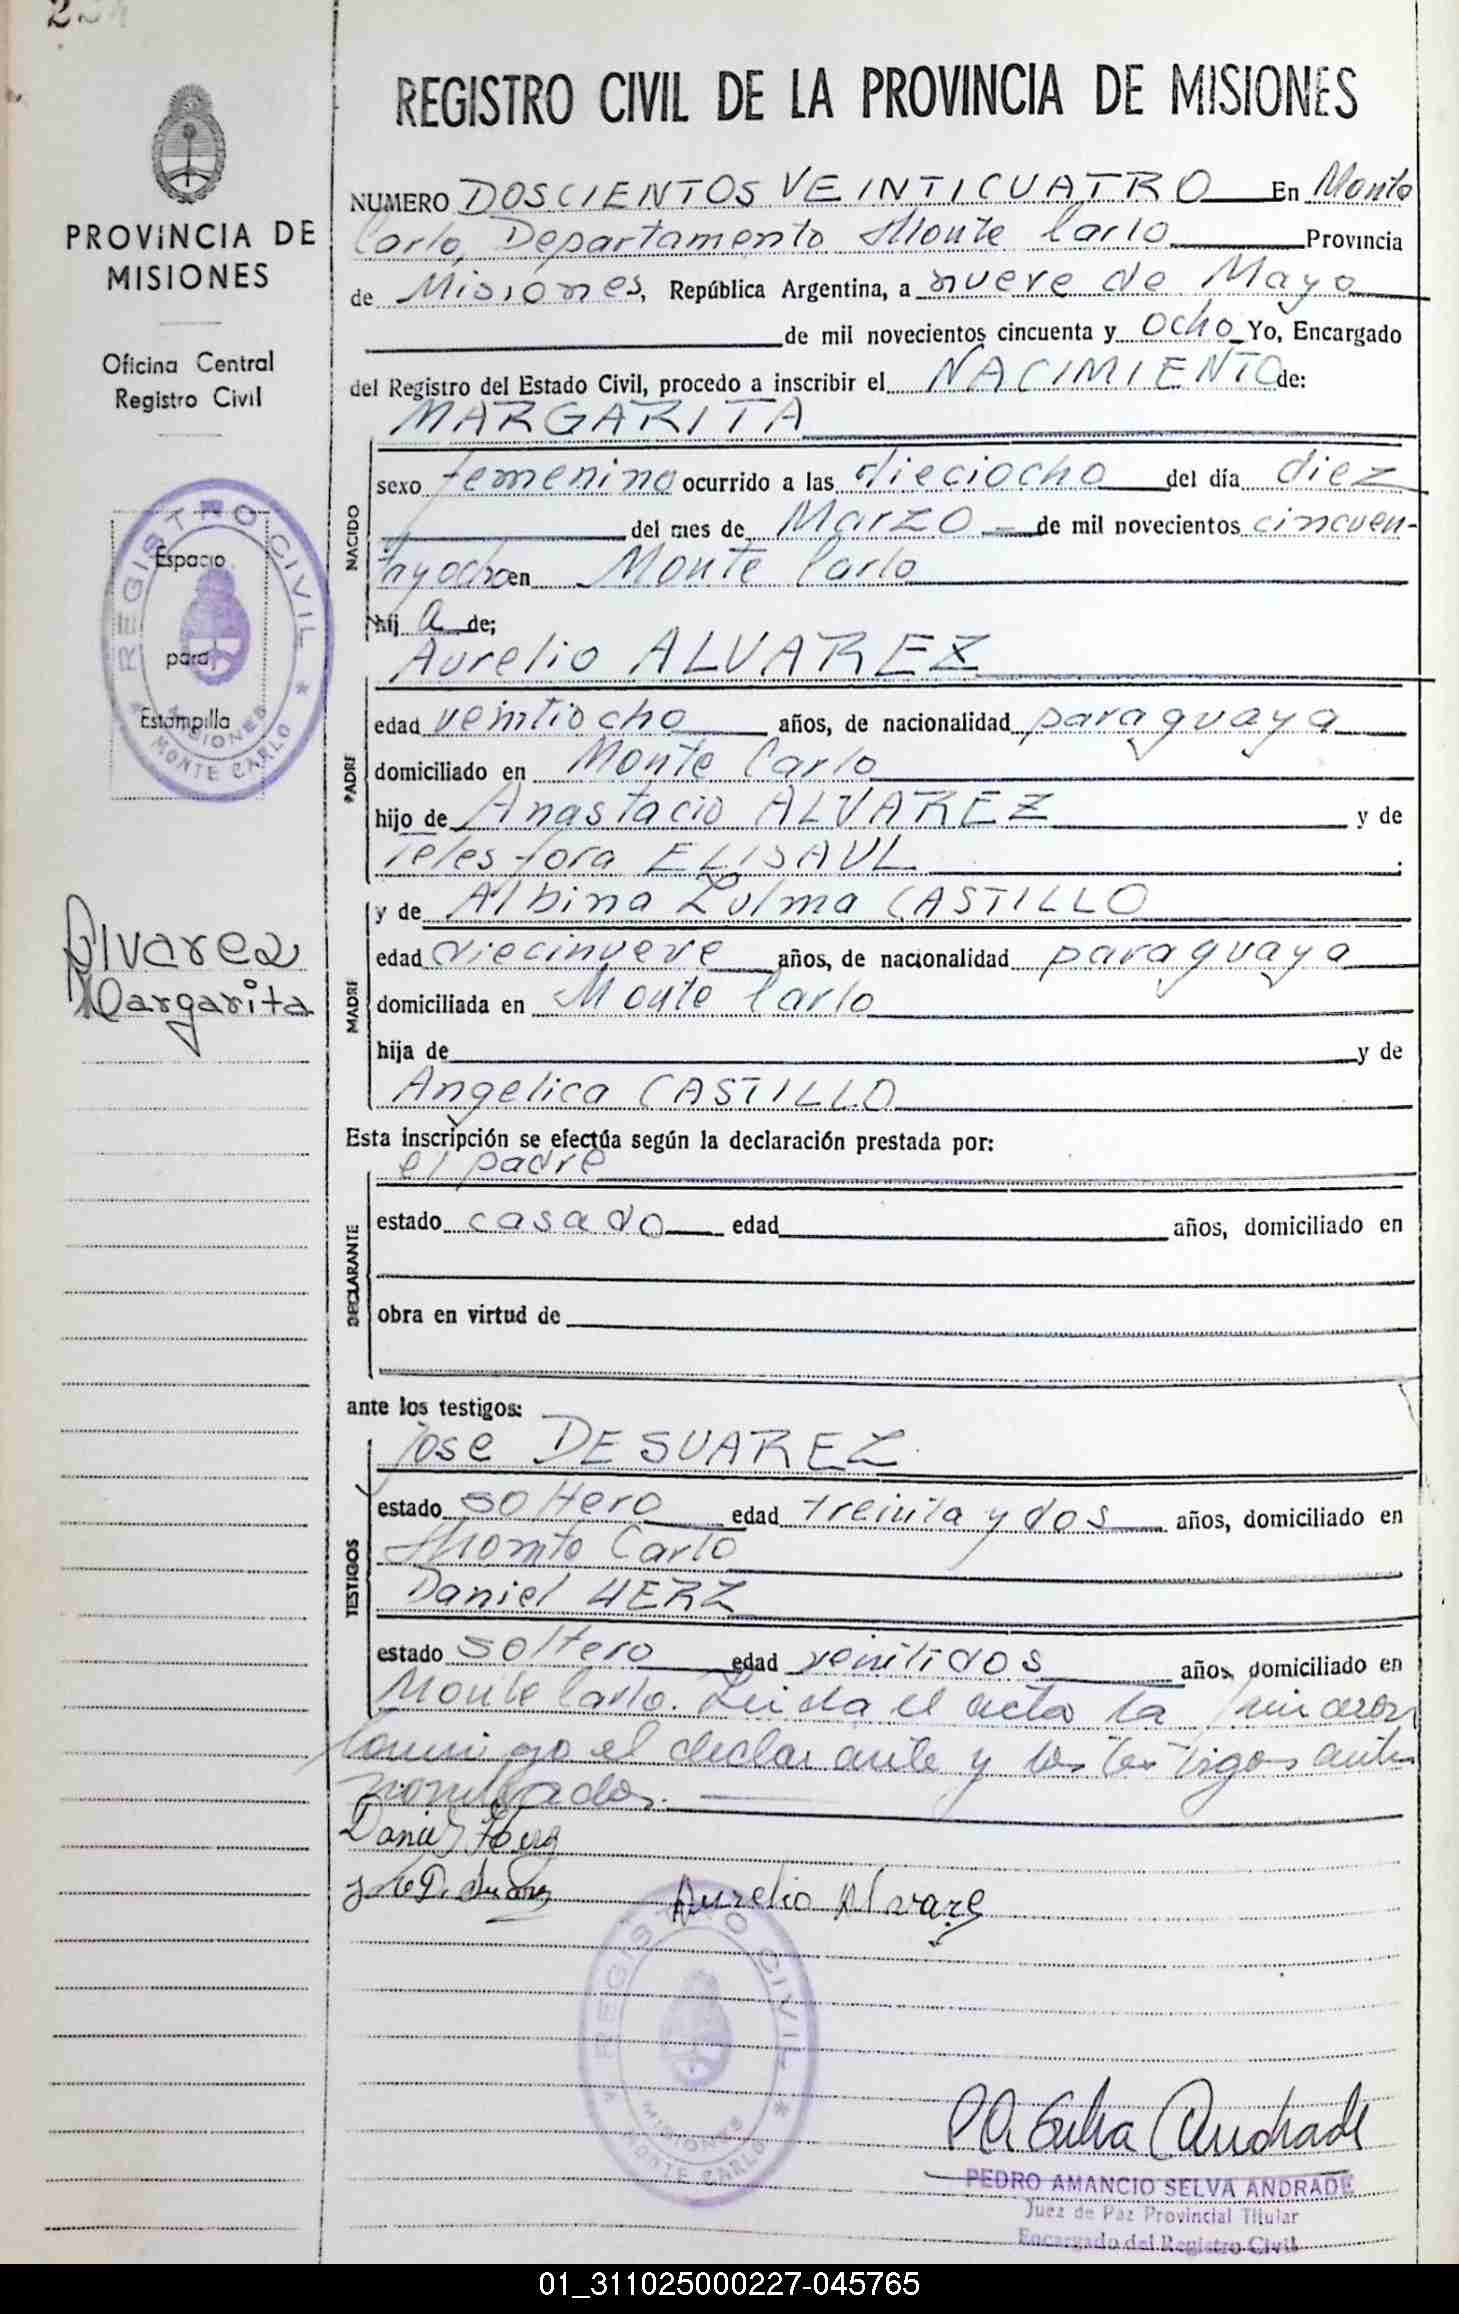 REGISTRO CIVIL DE LA PROVINCIA DE MISIONES
PROVINCIA DE
MISIONES
Oficina Central
Registro Civil
REGISTRO CIVIL
Espacio
para
Estampilla
MISIONES
MONTE CARLO
Alvarez
Margarita
NUMERO DOSCIENTOS VEINTICUATRO En Monte
Carlo, Departamento Monte Carlo Provincia
de Misiones, República Argentina, a nueve de Mayo
de mil novecientos cincuenta y ocho Yo, Encargado
del Registro del Estado Civil, procedo a inscribir el NACIMIENTO de:
MARGARITA
NACIDO
sexo femenino ocurrido a las dieciocho del día diez
del mes de Marzo de mil novecientos cincuen-
tayocho en Monte Carlo
hij a de;
Aurelio ALVAREZ
PADRE
edad veintiocho años, de nacionalidad paraguaya
domiciliado en Monte Carlo
hijo de Anastacio ALVAREZ y de
Telesfora ELISAUL
MADRE
y de Albina Zulma CASTILLO
edad diecinueve años, de nacionalidad paraguaya
domiciliada en Monte Carlo
hija de y de
Angelica CASTILLO
Esta inscripción se efectúa según la declaración prestada por:
el padre
DECLARANTE
estado casado edad años, domiciliado en
obra en virtud de
ante los testigos:
Jose DESUAREZ
TESTIGOS
estado soltero edad treinta y dos años, domiciliado en
Monte Carlo
Daniel HERZ
estado soltero edad veintidos años, domiciliado en
Monte Carlo. Leida el acta la firmaron
conmigo el declarante y los testigos ante
nombrados.
Daniel Herz
Aurelio Alvarez
REGISTRO CIVIL
MISIONES
MONTE CARLO
PA Selva Andrade
PEDRO AMANCIO SELVA ANDRADE
Juez de Paz Provincial Titular
Encargado del Registro Civil
01_311025000227-045765